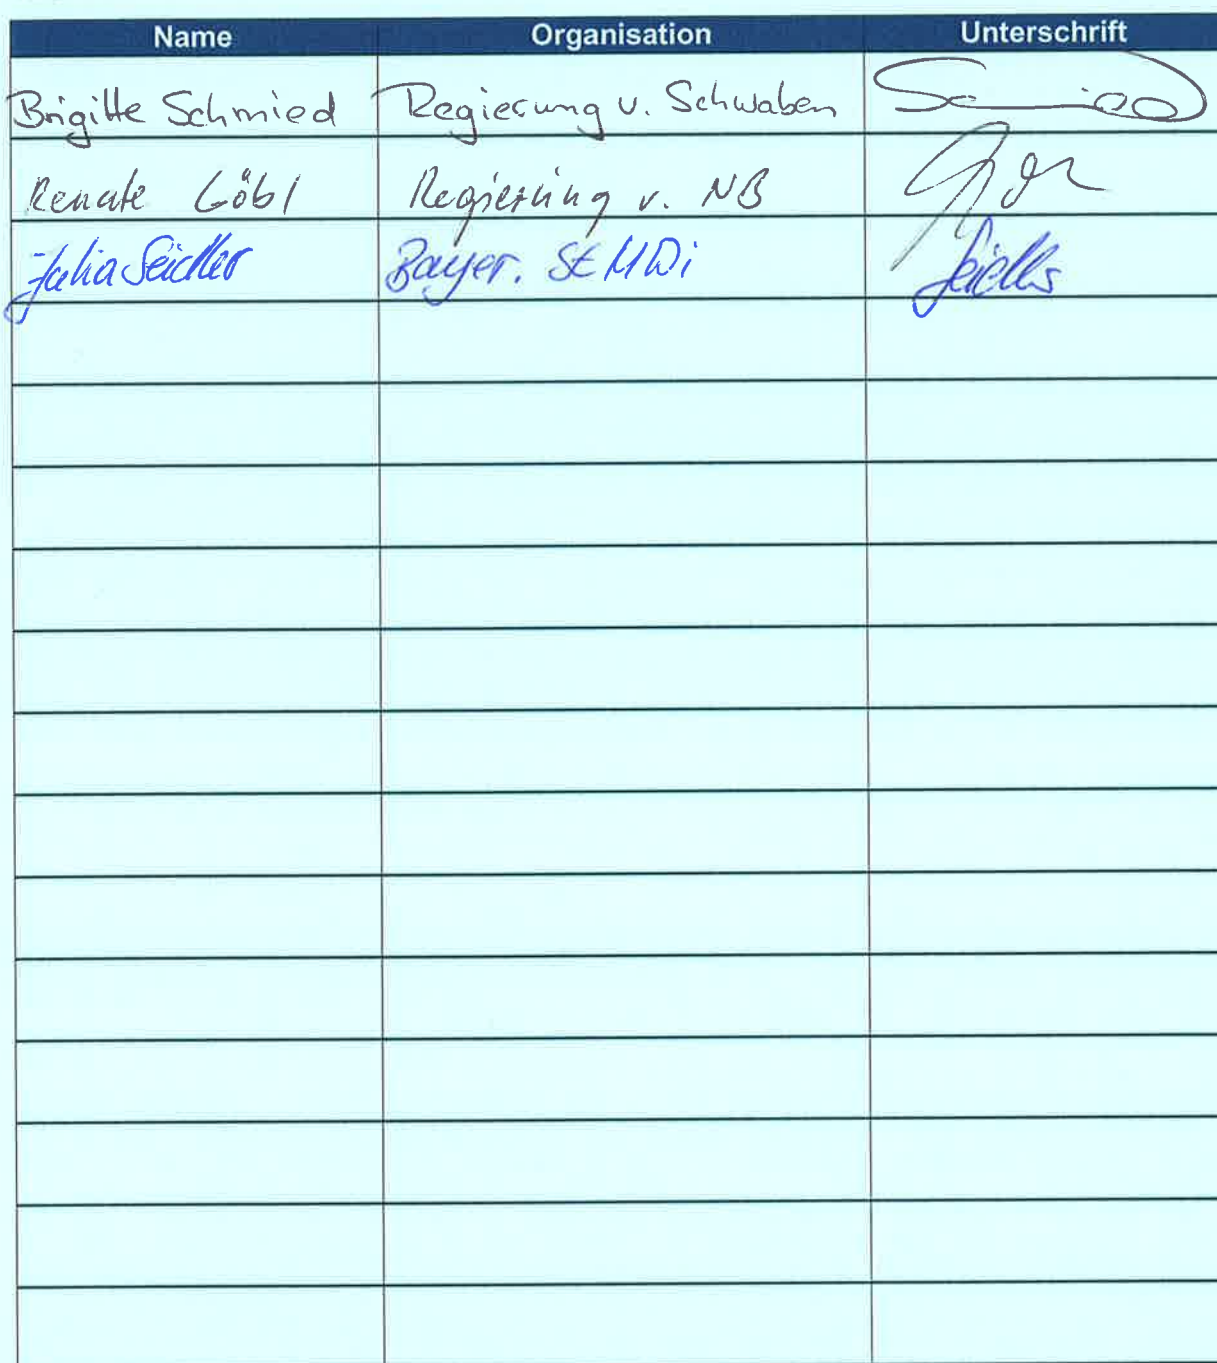 Name Organisation Unterschrift
Brigitte Schmied Regierung v. Schwaben Schmied
Renate Göbl Regierung v. NB
Julia Seidler Bayer. StMWi Seidler